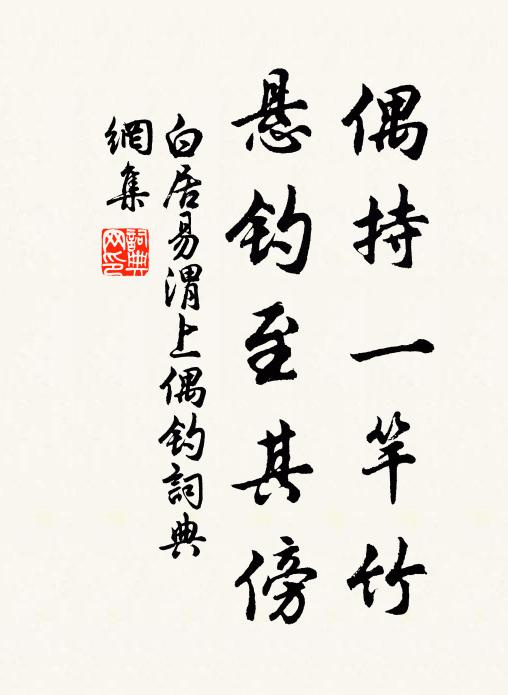 偶持一竿竹
悬钓至其傍
白居易渭上偶钓詞典
網集
詞典
网印